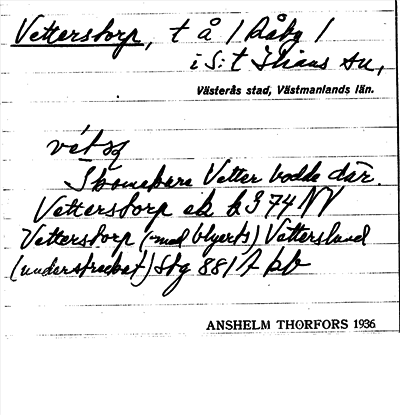 Vetterstorp, t å / Råby /
i S:t Ilians sn,
Västerås stad, Västmanlands län.
Skomakare Vetter bodde där.
Vetterstorp ek bl 74 NV
Vetterstorp (med blyerts) Vetterslund
(understreckat) Stg 881 A
ANSHELM THORFORS 1936